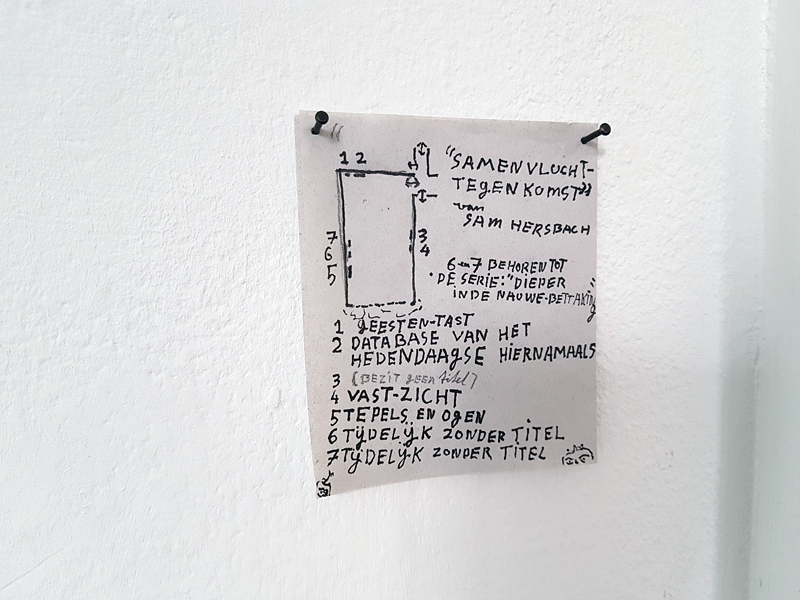 1 2
"SAMENVLUCHT-
TEGENKOMST"
van
SAM HERSBACH
7
6
5
3
4
6 en 7 BEHOREN TOT
DE SERIE: "DIEPER
IN DE NAUWE-BETTAKING"
1 GEESTEN-TAST
2 DATABASE VAN HET
HEDENDAAGSE HIERNAMAALS
3 (BEZIT GEEN titel)
4 VAST-ZICHT
5 TEPELS EN OGEN
6 TIJDELIJK ZONDER TITEL
7 TIJDELIJK ZONDER TITEL